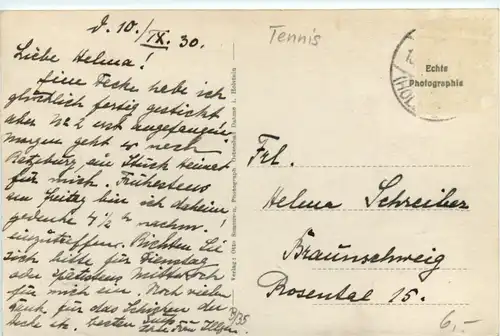 d. 10./IX. 30.
Liebe Helma!
Eine Decke habe ich
glücklich fertig gestickt
aber № 2 erst angefangen.
Morgen geht es nach
Ratzeburg, ein Stück Heimat
für mich. Frühestens
am Freitag bin ich daheim,
gedenke 4½ nachm.
einzutreffen. Richten Sie
sich bitte für Dienstag
oder spätestens Mittwoch
für mich ein. Noch vielen
Dank für das Schicken der
Decke etc. besten Gruß
Ihre Frau
8/35
Verlag: Otto u. Photograph Dahme i. Holstein
Tennis
Echte
Photographie
Frl.
Helma Schreiber
Braunschweig
Rosental 15.
6,-